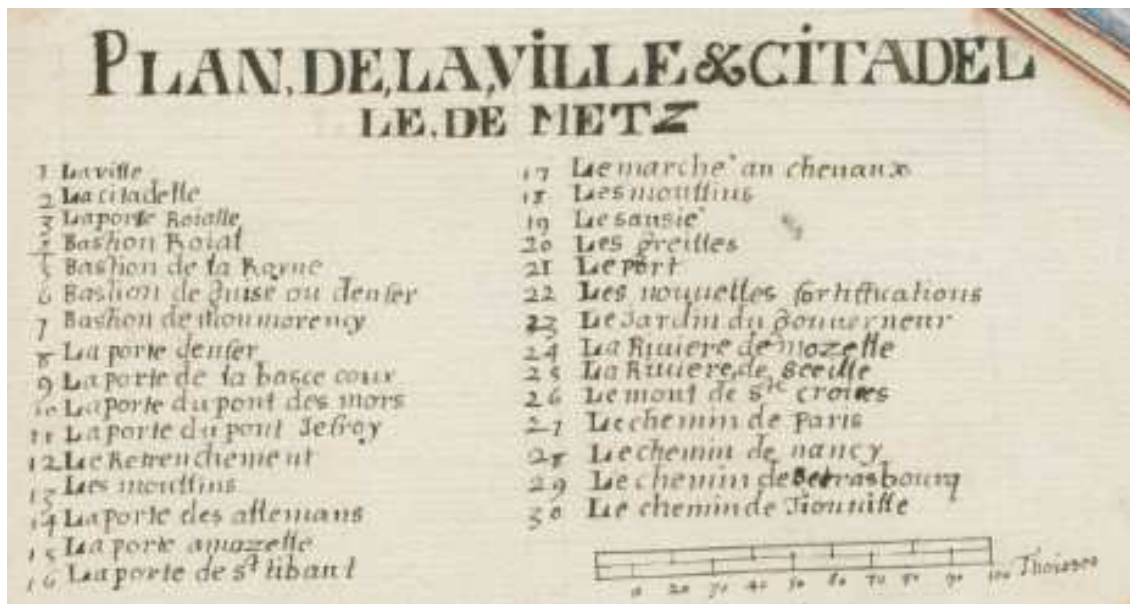 PLAN, DE, LA, ViLLE & CiTADEL
LE, DE METZ
1 La ville
2 La citadelle
3 La porte Roialle
4 Bastion Roial
5 Bastion de la Rayne
6 Bastion de guise ou denfer
7 Bastion de moumorency
8 La porte denfer
9 La porte de la basce cour
10 La porte du pont des mors
11 La porte du pont Jefroy
12 Le Retrenchement
13 Les moullins
14 La porte des allemans
15 La porte amozelle
16 La porte de st tibaut
17 Le marche au chevaux
18 Les moullins
19 Le sausie
20 Les greilles
21 Le port
22 Les nouuelles fortiffications
23 Le Jardin du gouuerneur
24 La Riuiere de mozelle
25 La Riuiere, de seeille
26 Le mont de ste croixes
27 Le chemin de Paris
28 Le chemin de nancy
29 Le chemin de strasbourg
30 Le chemin de Tionuille
10 20 30 40 50 60 70 80 90 100 Thoises